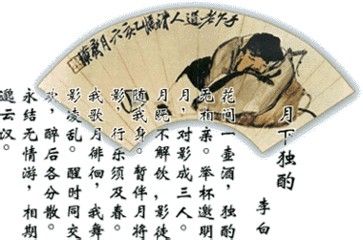 月下独酌
李白
花间一壶酒，独酌
无相亲。举杯邀明
月，对影成三人。
月既不解饮，影徒
随我身。暂伴月将
影，行乐须及春。
我歌月徘徊，我舞
影凌乱。醒时同交
欢，醉后各分散。
永结无情游，相期
邈云汉。